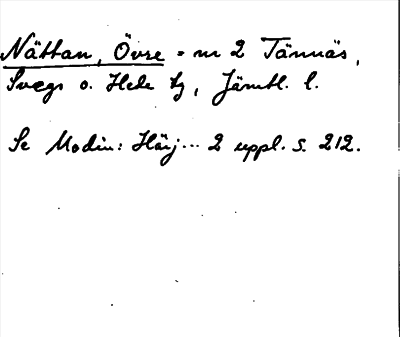 Nättan, Övre = nr 2 Tännäs,
Svegs o. Hede tg, Jämtl. l.
Se Modin: Härj... 2 uppl. s. 212.